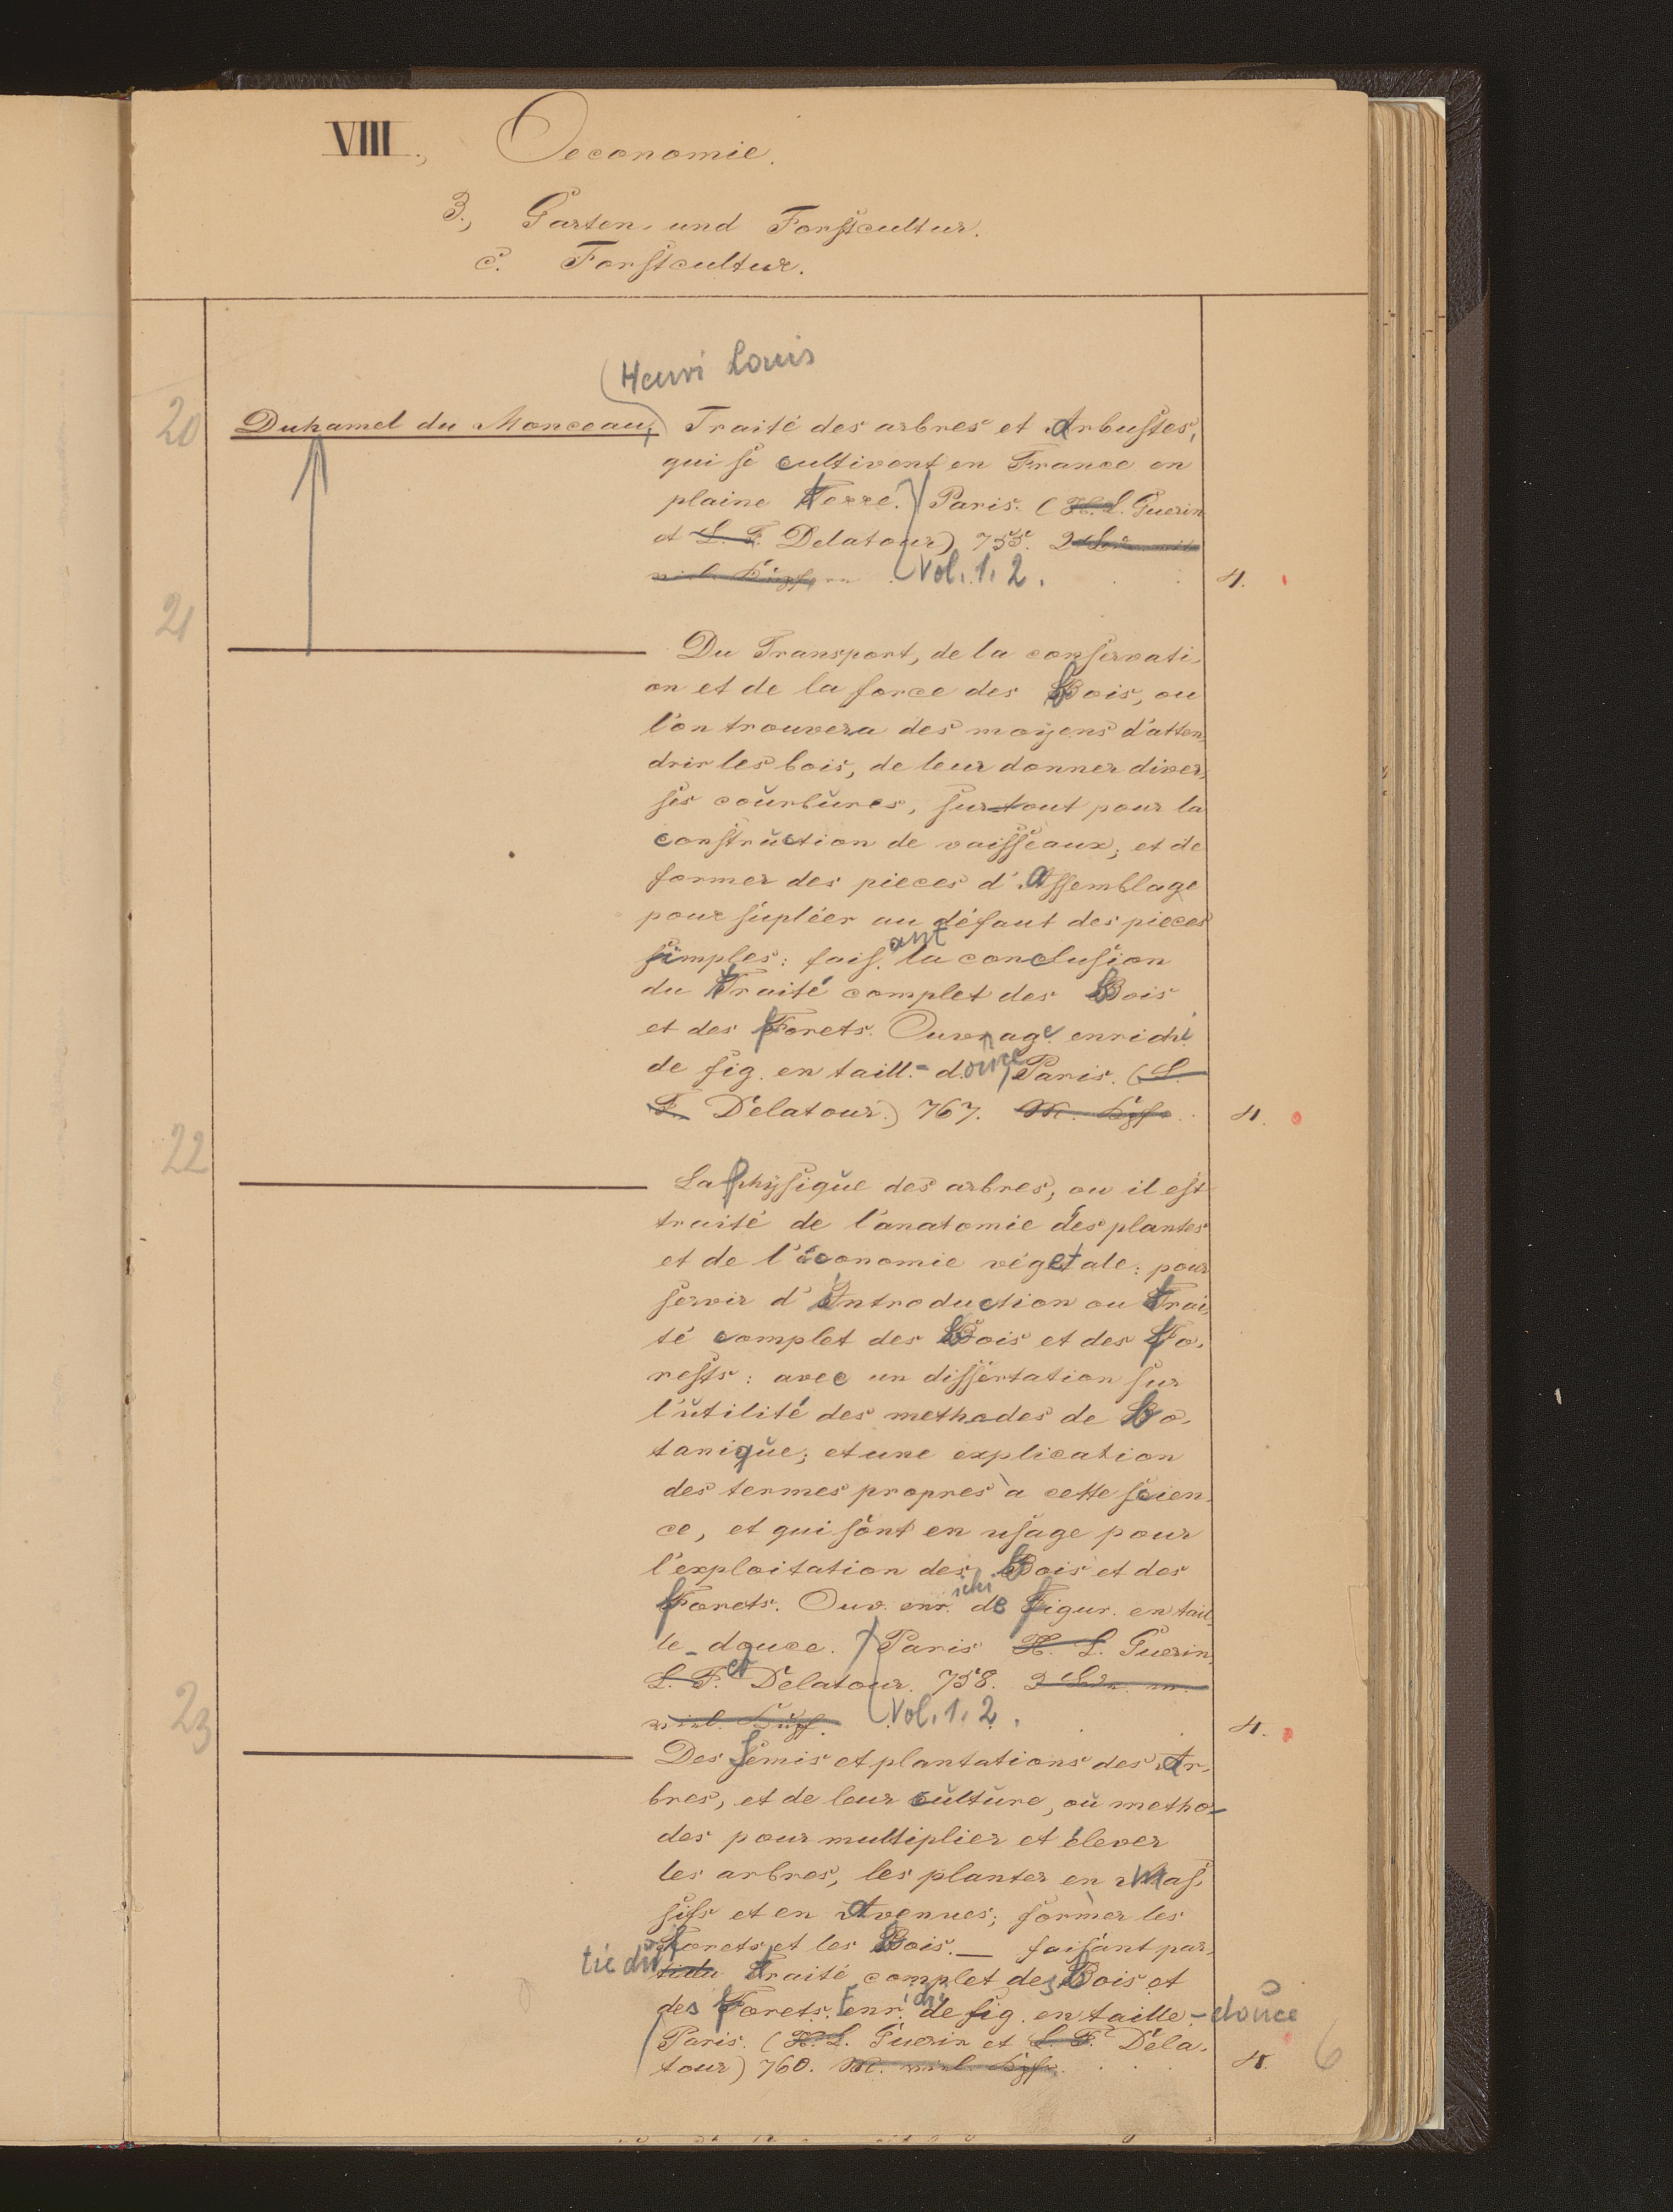 VIII., Oeconomie.
3., Garten- und Forstcultur.
c. Forstcultur.
(Henri Louis
20 Duhamel du Monceau, Traité des arbres et arbustes,
qui se cultivent en France en
plaine terre. Paris. (H. L. Guerin
et L. F. Delatour) 755. 2
Vol. 1. 2. 4.
21 Du Transport, de la conservati-
on et de la force des bois, ou
l'on trouvera des moyens d'atten-
drir les bois, de leur donner diver-
ses courbures, surtout pour la
construction de vaisseaux, et de
former des pieces d'assemblage
pour supléer au défaut des pieces
simples: faisant la conclusion
du traité complet des bois
et des forets. Ouvrage enrichi
de fig. en taill.-douce Paris. (L.
F. Delatour.) 767. M. Kpf. 4.
22 La physique des arbres, ou il est
traité de l'anatomie des plantes
et de l'économie végetale: pour
servir d'introduction ou trai-
té complet des bois et des fo-
rests: avec un dissertation sur
l'utilité des methodes de bo-
tanique; et une explication
des termes propres à cette scien-
ce, et qui sont en usage pour
l'exploitation des bois et des
forets. Ouv. enrichi de figur. en tail-
le-douce. Paris H. L. Guerin,
L. F. et Delatour. 758. 2
Vol. 1. 2. 4.
23 Des semis et plantations des ar-
bres, et de leur culture, ou metho-
des pour multiplier et élever
les arbres, les planter en mas-
sifs et en avenues; former les
forets et les bois. — faisant par-
tie du traité complet des bois et
des forets. enrichi de fig. en taille-douce
Paris. (H. L. Guerin et L. F. Dela-
tour) 760. 4. 6